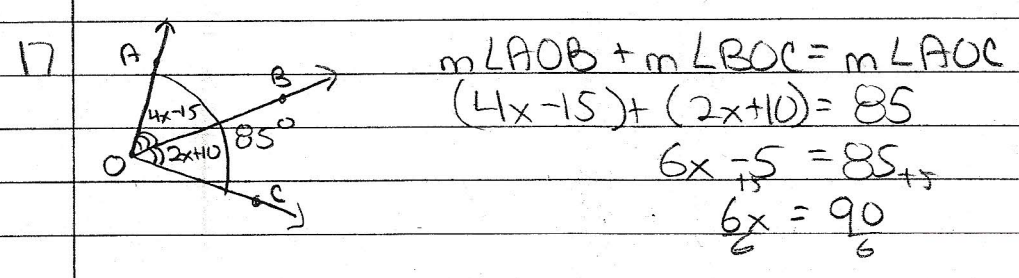 17
A
B
4x-15
85°
2x+10
O
C
m∠AOB + m∠BOC = m∠AOC
(4x-15)+(2x+10)= 85
6x -5 = 85
+5 +5
6x = 90
6 6